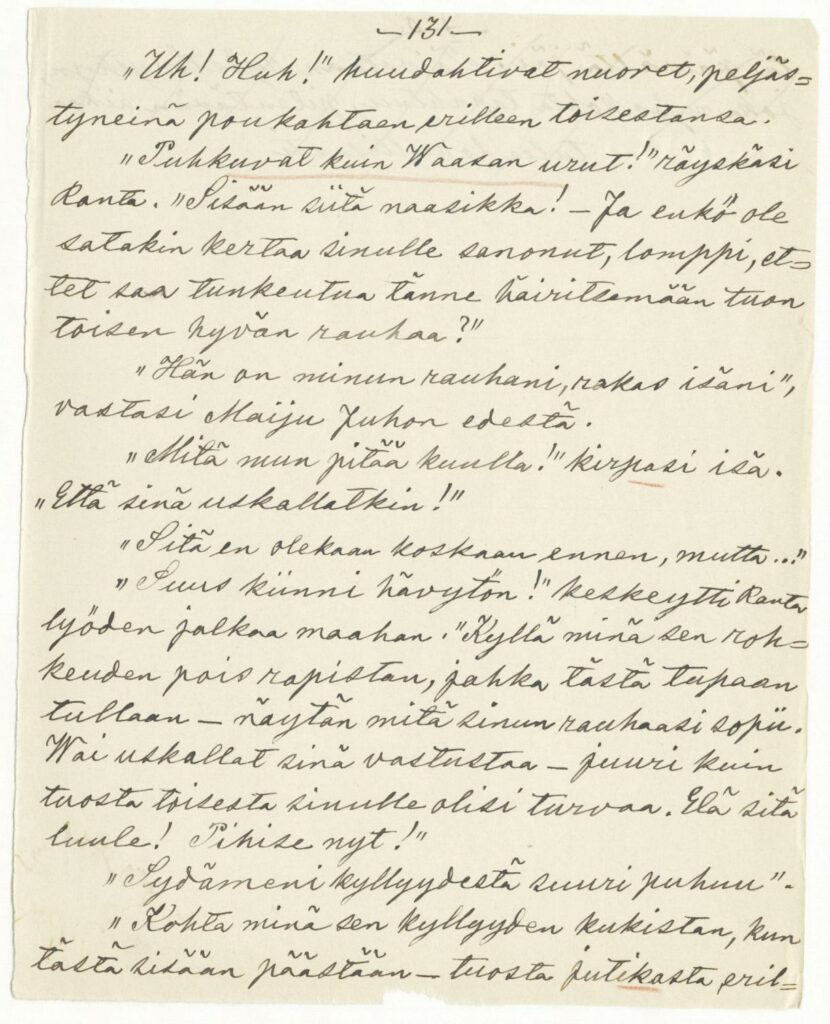 —131—
„Uh! Huh!" huudahtivat nuoret, peljäs=
tyneinä poukahtaen erilleen toisestansa.
„Puhkuvat kuin Waasan urut!" räyskäsi
Ranta. „Sisään siitä naasikka! — Ja enkö ole
satakin kertaa sinulle sanonut, lomppi, et=
tet saa tunkeutua tänne häiritsemään tuon
toisen hyvän rauhaa?"
„Hän on minun rauhani, rakas isäni",
vastasi Maiju Juhon edestä.
„Mitä mun pitää kuulla!" kirpasi isä.
„Että sinä uskallatkin!"
„Sitä en olekaan koskaan ennen, mutta..."
„Suus kiinni hävytön!" keskeytti Ranta
lyöden jalkaa maahan. „Kyllä minä sen roh=
keuden pois rapistan, jahka tästä tupaan
tullaan — näytän mitä sinun rauhaasi sopii.
Wai uskallat sinä vastustaa — juuri kuin
tuosta toisesta sinulle olisi turvaa. Elä sitä
luule! Pihise nyt!"
„Sydämeni kyllyydestä suuri puhuu".
„Kohta minä sen kyllyyden kukistan, kun
tästä sisään päästään — tuosta jutikasta eril=